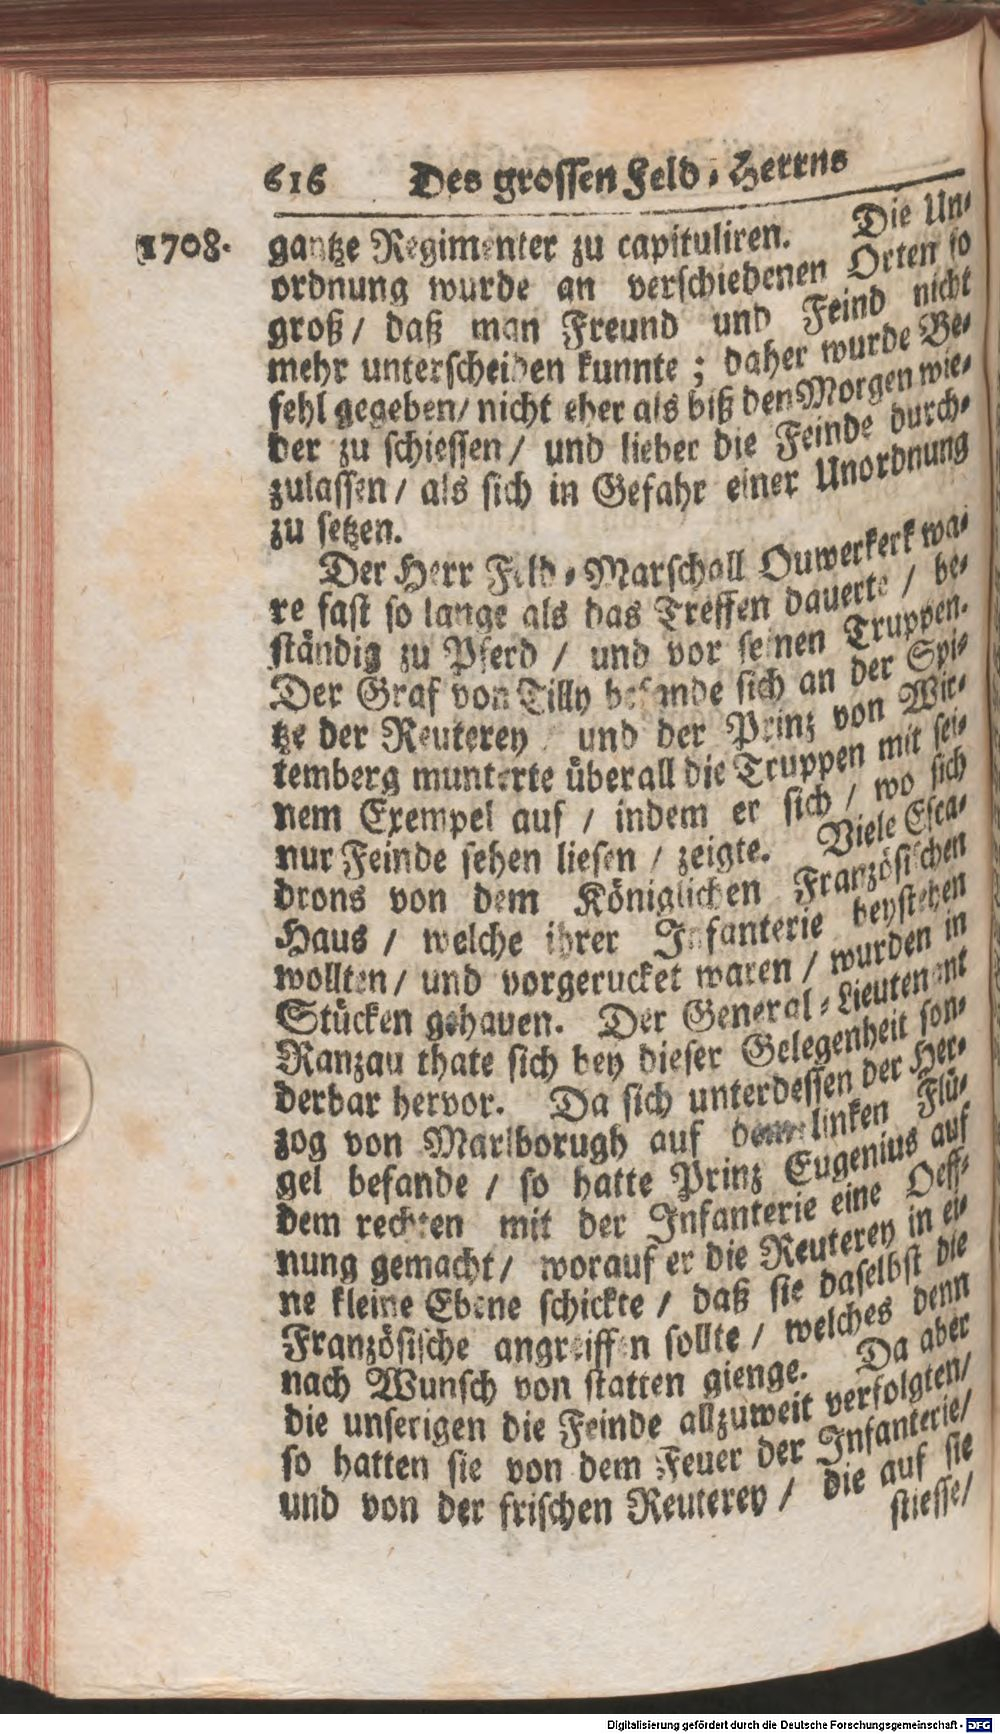 616 Des grossen Feld-Herrns
1708.
gantze Regimenter zu capituliren. Die Un-
ordnung wurde an verschiedenen Orten so
groß/ daß man Freund und Feind nicht
mehr unterscheiden kunnte; daher wurde Be-
fehl gegeben/ nicht eher als biß den Morgen wie-
der zu schiessen/ und lieber die Feinde durch-
zulassen/ als sich in Gefahr einer Unordnung
zu setzen.
Der Herr Feld-Marschall Ouwerkerk wa-
re fast so lange als das Treffen dauerte/ be-
ständig zu Pferd/ und vor seinen Truppen.
Der Graf von Tilly befande sich an der Spi-
tze der Reuterey und der Prinz von Wir-
temberg munterte überall die Truppen mit sei-
nem Exempel auf/ indem er sich/ wo sich
nur Feinde sehen liesen/ zeigte. Viele Esca-
drons von dem Königlichen Französischen
Haus/ welche ihrer Infanterie beystehen
wollten/ und vorgerucket waren/ wurden in
Stücken gehauen. Der General-Lieutenant
Ranzau thate sich bey dieser Gelegenheit son-
derbar hervor. Da sich unterdessen der Her-
zog von Marlborugh auf dem linken Flü-
gel befande/ so hatte Prinz Eugenius auf
dem rechten mit der Infanterie eine Oeff-
nung gemacht/ worauf er die Reuterey in ei-
ne kleine Ebene schickte/ daß sie daselbst die
Französische angreiffen sollte/ welches denn
nach Wunsch von statten gienge. Da aber
die unserigen die Feinde allzuweit verfolgten/
so hatten sie von dem Feuer der Infanterie/
und von der frischen Reuterey/ die auf sie
stiesse/
Digitalisierung gefördert durch die Deutsche Forschungsgemeinschaft - DFG